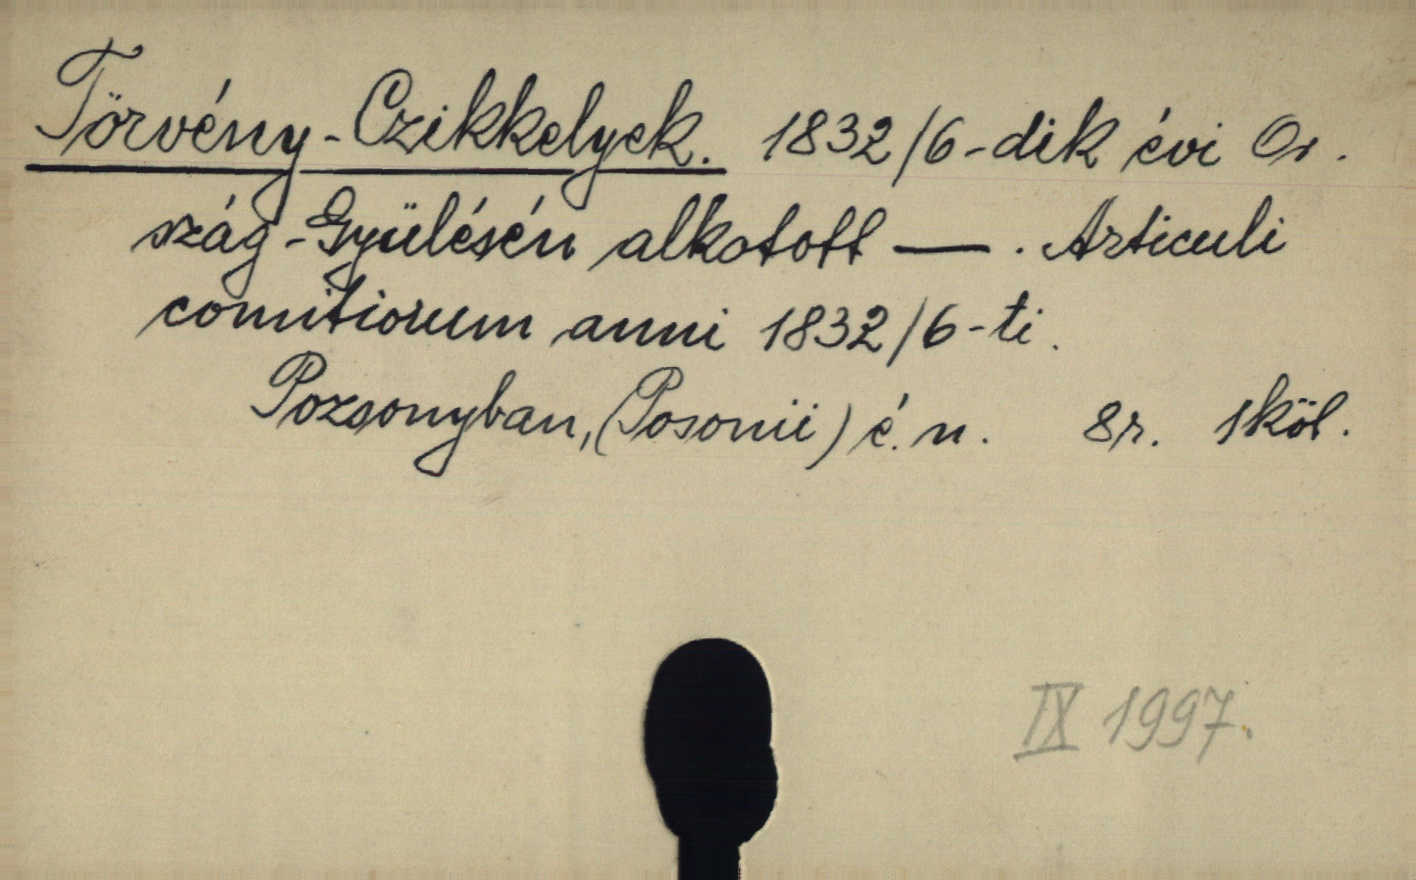 Törvény-Czikkelyek. 1832/6-dik évi Or.
szág-Gyülésén alkotott —. Articuli
comitiorum anni 1832/6-ti.
Pozsonyban, (Posonii) é. n. 8r. 1 köl.
IX 1997.